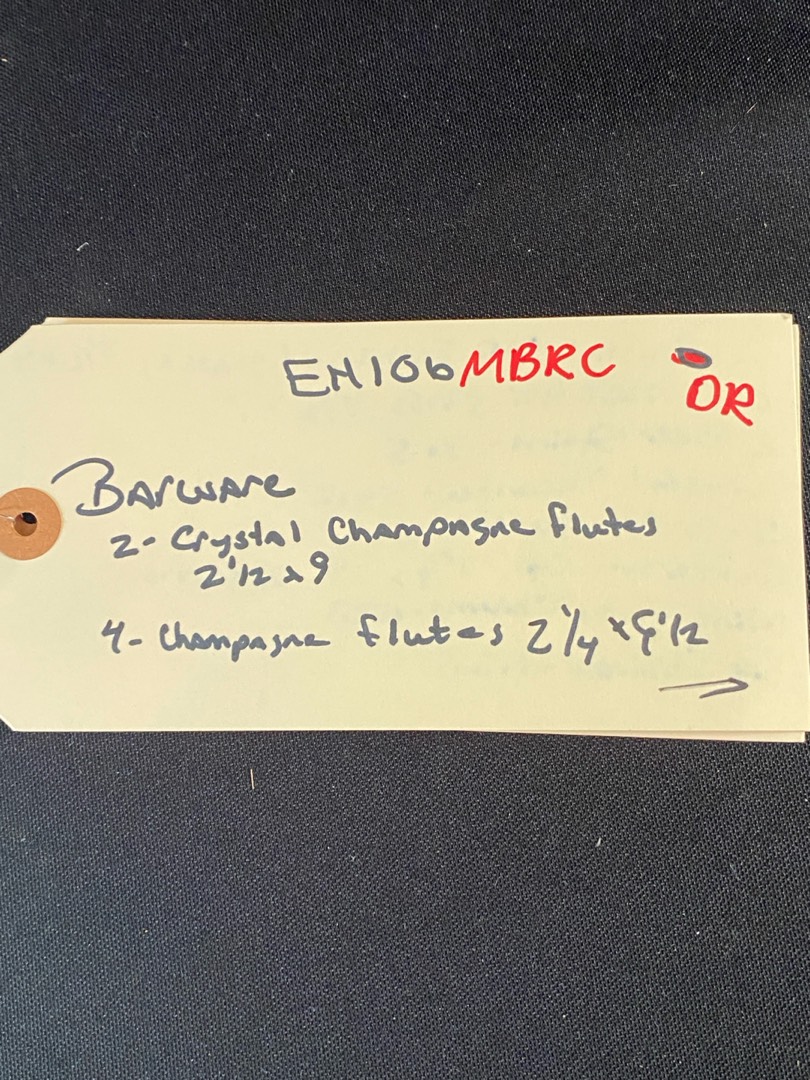 EN106MBRC
OR
Barware
2- Crystal Champagne flutes
2 1/2 x 9
4- Champagne flutes 2 1/4 x